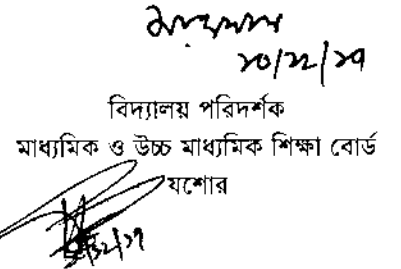 ১০/১২/১৭
বিদ্যালয় পরিদর্শক
মাধ্যমিক ও উচ্চ মাধ্যমিক শিক্ষা বোর্ড
যশোর